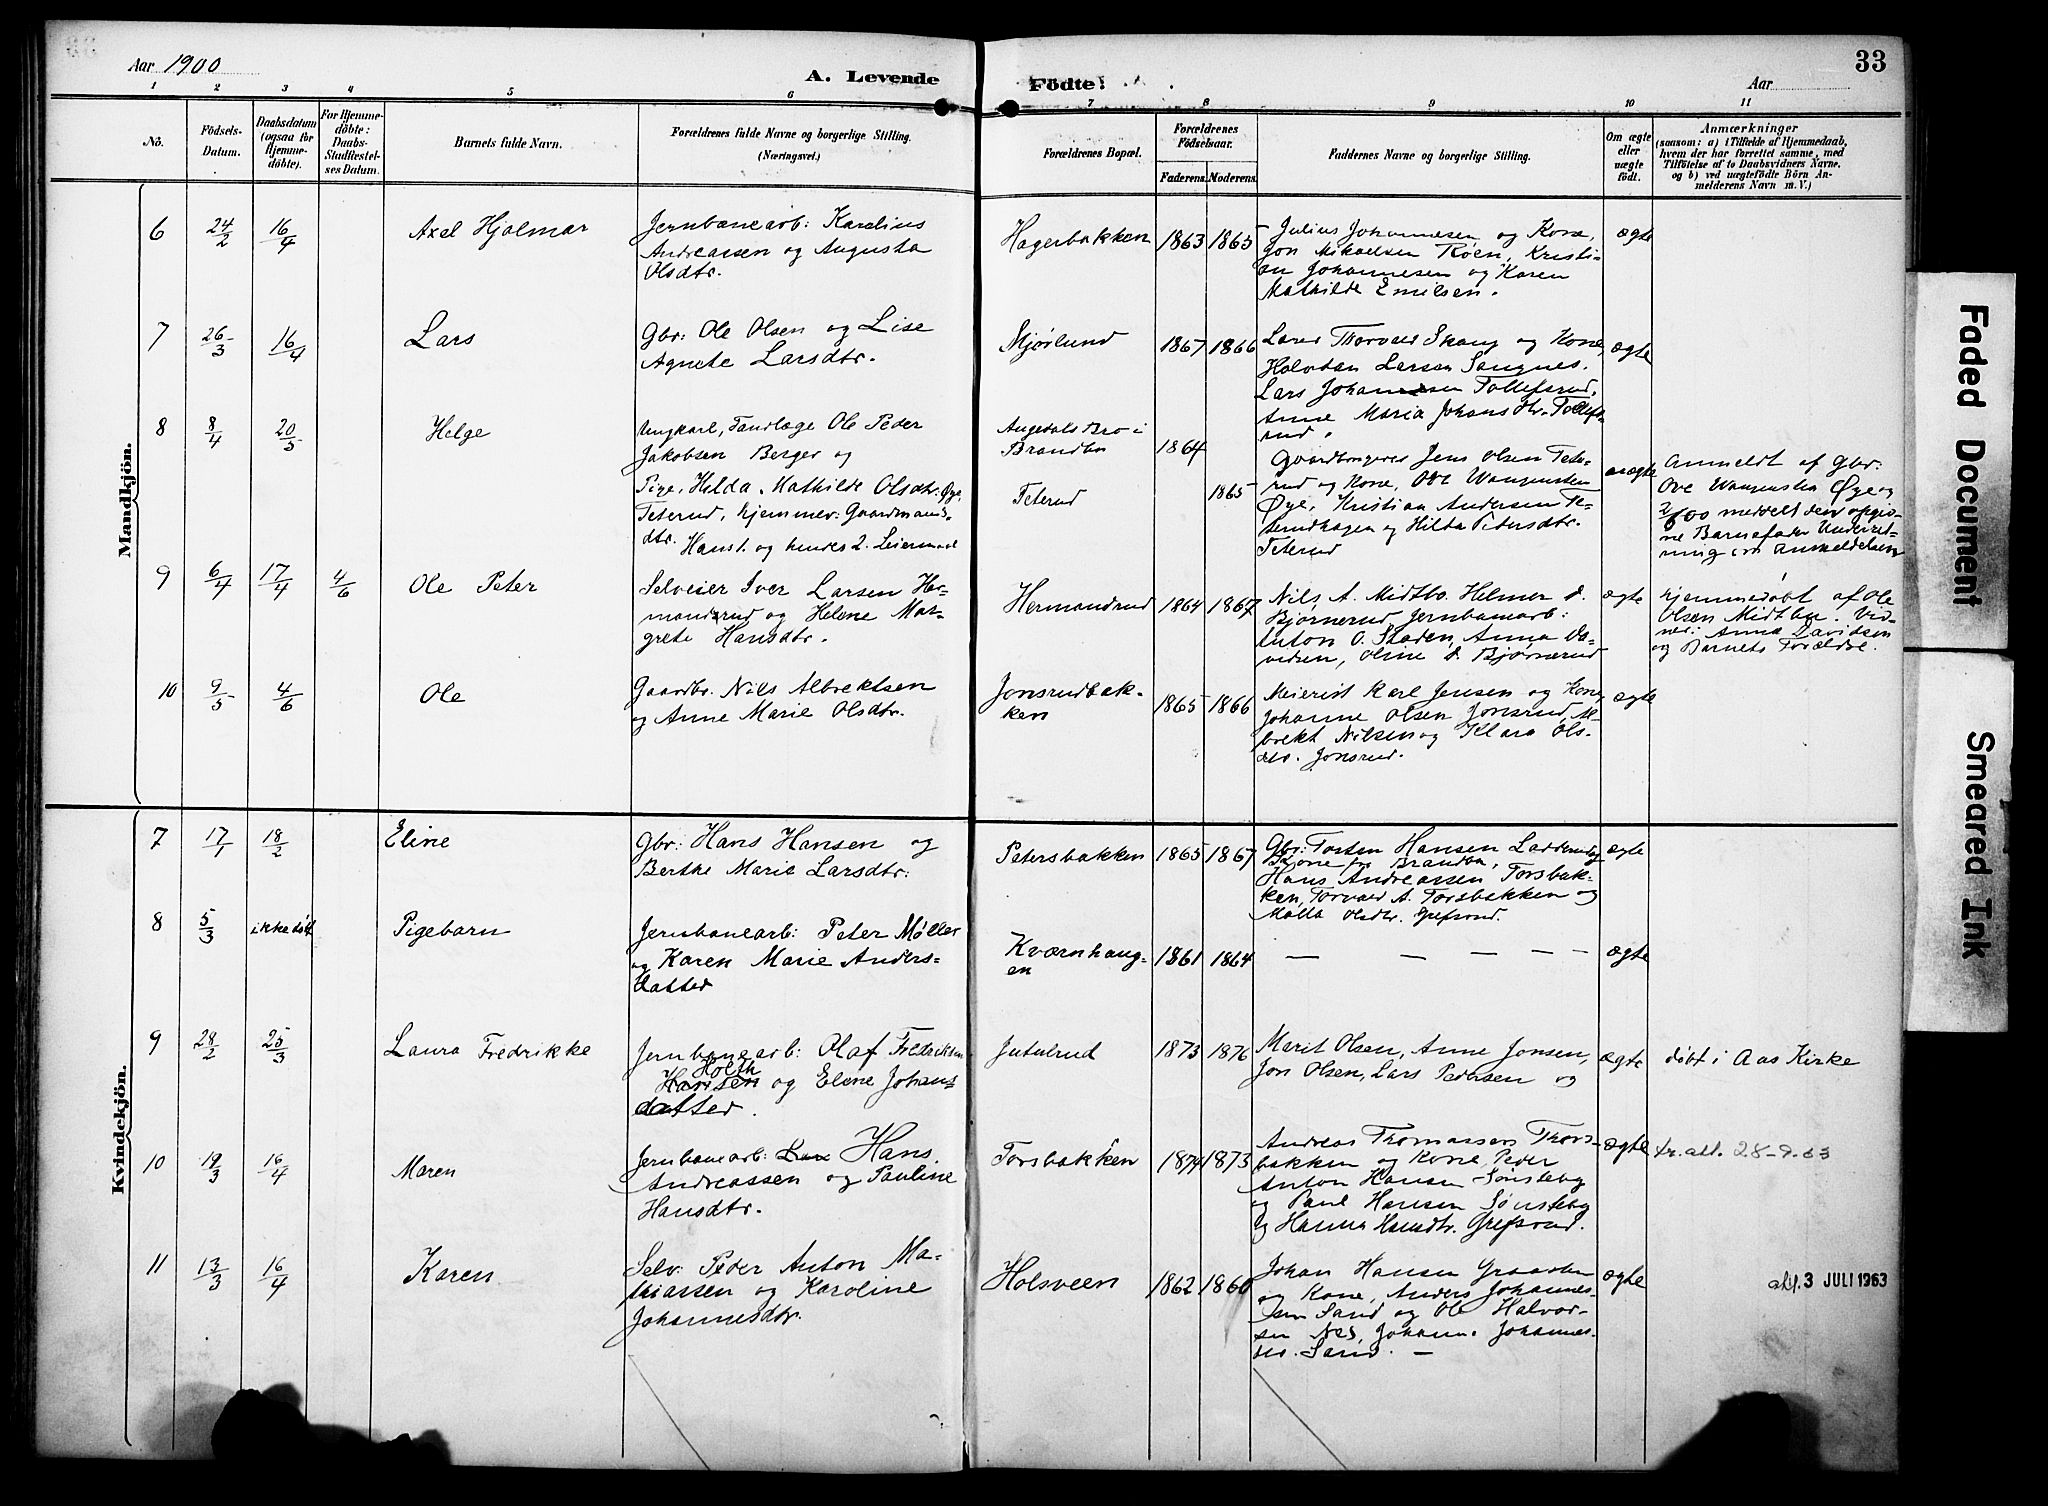 Aar 1900
A. Levende
Födte.
Aar
33
1 2 3 4 5 6 7 8 9 10 11
No.
Födsels-
Datum.
Daabsdatum
(ogsaa for
Hjemme-
döbte).
For Hjemme-
döbte:
Daabs-
Stadfæstel-
ses Datum.
Barnets fulde Navn.
Forældrenes fulde Navne og borgerlige Stilling.
(Næringsvei.)
Forældrenes Bopæl.
Forældrenes
Födselsaar.
Faderens. Moderens.
Faddernes Navne og borgerlige Stilling.
Om ægte
eller
uægte
födt.
Anmærkninger
(saasom: a) i Tilfælde af Hjemmedaab,
hvem der har forrettet samme, med
Tilföielse af to Daabsvidners Navne,
og b) ved uægtefödte Börn An-
melderens Navn m. V.)
Mandkjön.
6 24/2 16/4 Axel Hjalmar
Jernbanearb: Karelius
Andreassen og Augusta
Olsdtr.
Hagerbakken 1863 1865
Julius Johannesen og Kone,
Jon Mikaelsen Roen, Kristi-
an Johannesen og Karen
Mathilde Emilsen.
ægte
7 26/3 16/4 Lars
Gbr: Ole Olsen og Lise
Agnete Larsdtr.
Mjørlund 1867 1866
Lars Thorvald Skaug og Kone,
Halvdan Larsen Sangnes.
Lars Johansen Tollefsrud,
Anne Maria Johansdtr. Tollefs-
rud.
ægte
8 8/4 20/5 Helge
Ungkarl, Tandlæge Ole Peder
Jakobsen Berger og
Pige, Hilda Mathilde Olsdtr: Øye,
Teterud, hjemmev: Gaardmands-
dtr. Hans 1. og hendes 2. Leiermaal
Augedals Bro i
Brandbu 1864
Teterud 1865
Gaardbrugeres Jens Olsen Tete-
rud og Kone, Ove Wangensten
Øye, Kristian Andersen Te-
terudhagen og Hilda Pedersdtr.
Teterud
uægte
Anmeldt af Gbr:
Ove Wangensten Øye og
2/6 00 meddelt den opgiv-
ne Barnefader Underret-
ning om Anmeldelsen
9 6/4 17/4 4/6 Ole Peter
Selveier Iver Larsen Her-
mandsrud og Helene Mar-
grete Hansdtr.
Hermandrud 1864 1867
Nils A. Midtbo. Helmer d.
Bjørnerud, Jernbanearb:
Anton O. Staden, Anna Da-
vidsen, Oline d. Bjørnerud
ægte
hjemmedøbt af Ole
Olsen Midtbo. Vid-
ner: Anna Davidsen
og Barnets Forældre.
10 9/5 4/6 Ole
Gaardbr. Nils Albrektsen
og Anne Marie Olsdtr.
Jonsrudbak-
ken 1865 1866
Meierist Karl Jensen og Kone,
Johanne Olsen Jonsrud, Al-
brekt Nilsen og Klara Ols-
dtr. Jonsrud.
ægte
Kvindekjön.
7 17/1 18/2 Eline
Gbr: Hans Hansen og
Berthe Marie Larsdtr:
Petersbakken 1865 1867
Gbr: Torsten Hansen
Kone fra Brandbu,
Hans Andreassen, Torsbak-
ken, Torvald A. Torsbakken og
Malla Olsdtr. Grefsrud.
ægte
8 5/3 ikke døbt Pigebarn
Jernbanearb: Peter Møller
og Karen Marie Anders-
datter
Kværnhaug-
en 1861 1864
— — — — —
ægte
9 28/2 25/3 Laura Fredrikke
Jernbanearb: Olaf Fredriksen
Holth
Hansen og Eline Johans-
datter.
Jutulrud 1873 1876
Marit Olsen, Anne Jonsen,
Jon Olsen, Lars Pedersen og
ægte
døbt i Aas Kirke
10 19/3 16/4 Maren
Jernbanearb: Hans
Andreassen og Pauline
Hansdtr.
Torsbakken 1874 1873
Andreas Thomassen Thors-
bakken og Kone, Peder
Anton Hansen Sønsteby
og Paul Hansen Sønsteby
Og Hanna Hansdtr. Grefsrud.
ægte
tr. att. 28-9.63
11 13/3 16/4 Karen
Selv: Peder Anton Ma-
thiassen og Karoline
Johannesdtr.
Holsveen 1862 1860
Johan Hansen
og Kone, Anders Johannes-
sen Sand og Ole Halvor-
sen Nes, Johanne Johannes-
dtr. Sand. —
ægte
3 JULI 1963
Faded Document
Smeared Ink